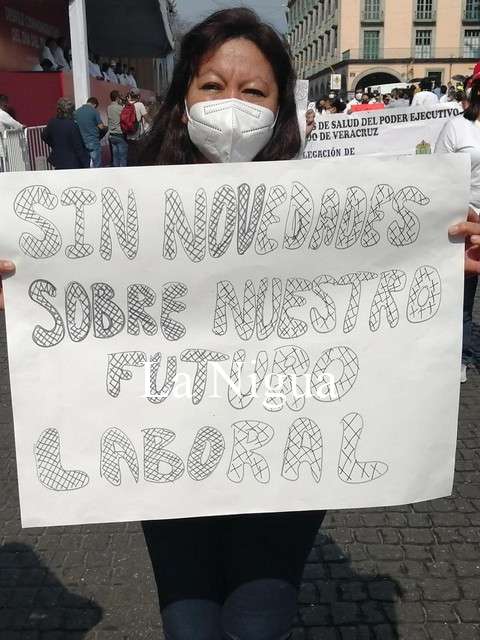 S DE SALUD DEL PODER EJECUTIVO
DO DE VERACRUZ
LEGACIÓN DE
SIN NOVEDADES
SOBRE NUESTRO
FUTURO
La Nigua
LABORAL